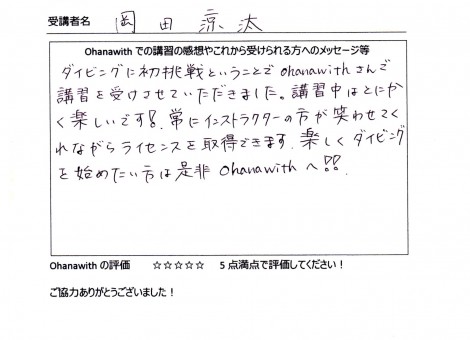 受講者名 岡田涼汰
Ohanawith での講習の感想やこれから受けられる方へのメッセージ等
ダイビングに初挑戦ということでohanawithさんで
講習を受けさせていただきました。講習中はとにか
く楽しいです!常にインストラクターの方が笑わせてく
れながらライセンスを取得できます。楽しくダイビング
を始めたい方は是非Ohanawithへ!!
Ohanawith の評価 ☆☆☆☆☆ 5 点満点で評価してください！
ご協力ありがとうございました！